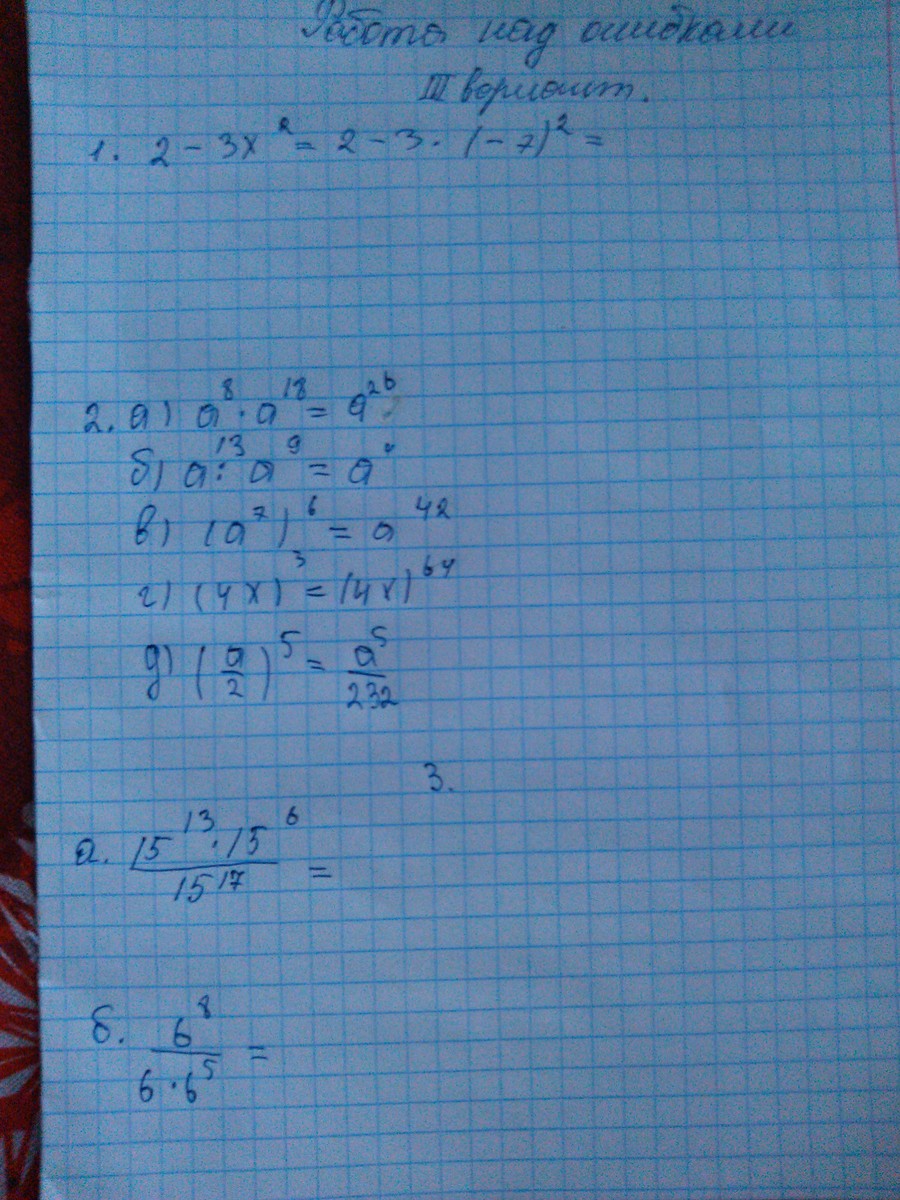 Работа над ошибками
III вариант.
1. 2 - 3x² = 2 - 3 · (-7)² =
2. а) a⁸ · a¹⁸ = a²⁶
б) a¹³ : a⁹ = a
в) (a⁷)⁶ = a⁴²
г) (4x)³ = (4x)⁶⁴
д) (a/2)⁵ = a⁵/232
3.
а. 15¹³ · 15⁶ / 15¹⁷ =
б. 6⁸ / 6 · 6⁵ =